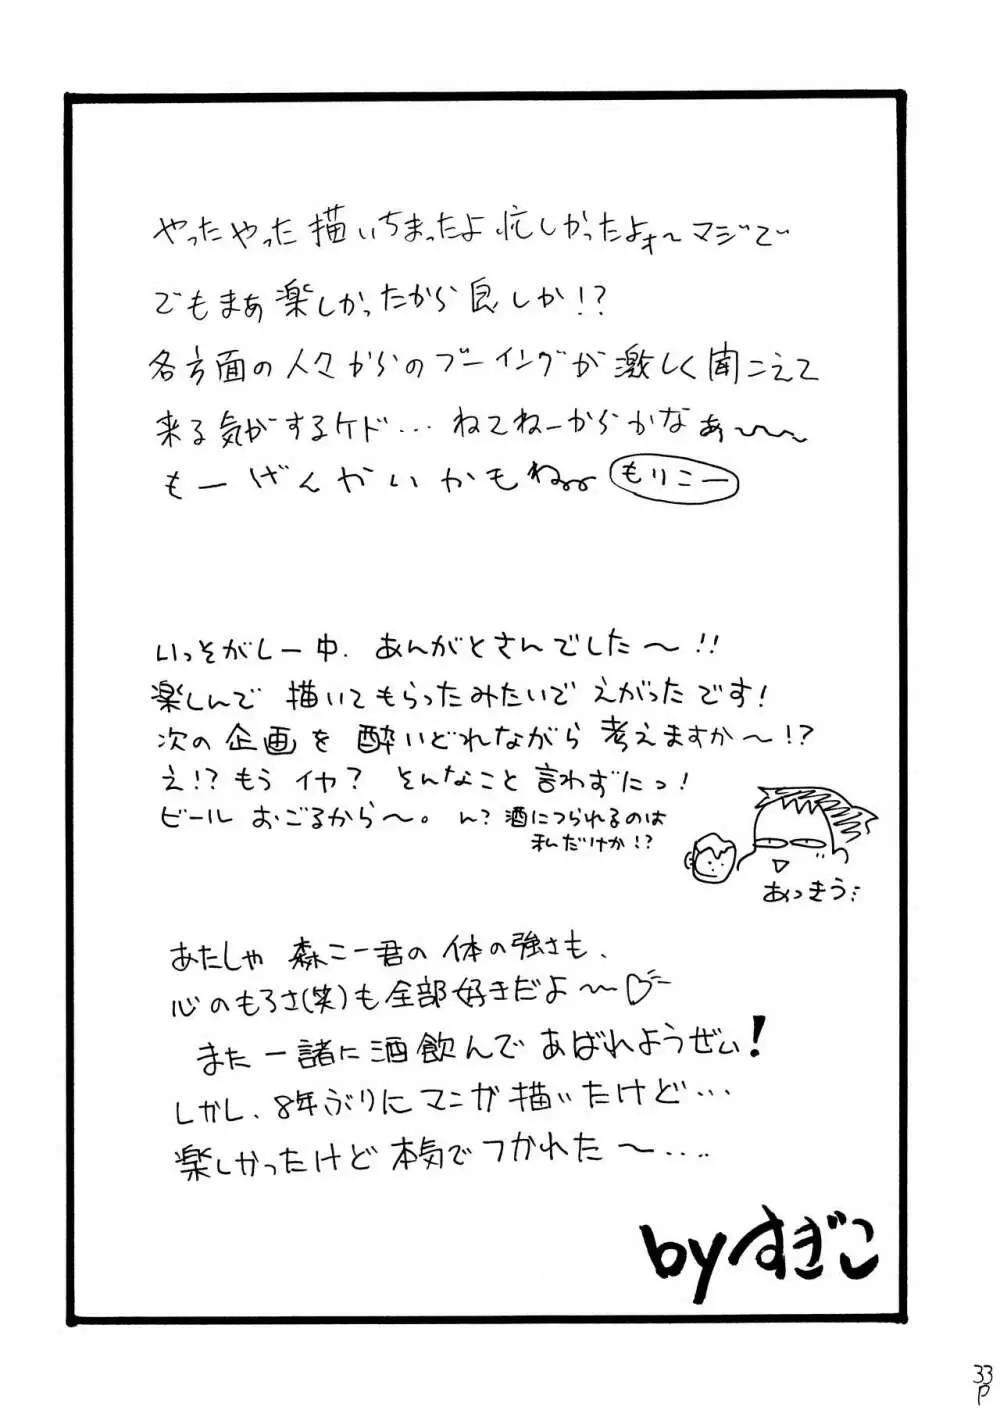 やったやった描いちまったよ忙しかったよォ〜マジで
でもまあ楽しかったから良しか!?
各方面の人々からのブーイングが激しく聞こえて
来る気がするケド... ねてねーからかなぁ〜〜
もーげんかいかもね
もりこー
いっそがしー中、あんがとさんでした〜!!
楽しんで 描いてもらったみたいで えがったです!
次の企画を 酔いどれながら 考えますか〜!?
え!? もう イヤ? そんなこと 言わずにっ!
ビール おごるから〜。 ん? 酒につられるのは
私だけか!?
あっきう
あたしゃ 森こー君の 体の強さも、
心のもろさ(笑)も全部好きだよ〜♡
また 一諸に 酒飲んで あばれようぜぃ!
しかし、8年ぶりにマンガ描いたけど...
楽しかったけど 本気でつかれた〜....
by すぎこ
33
P